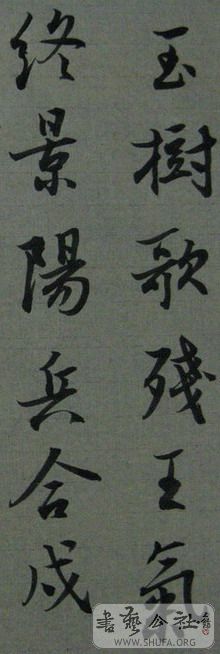 玉樹歌殘王氣
終景陽兵合戍
書藝公社
WWW.SHUFA.ORG